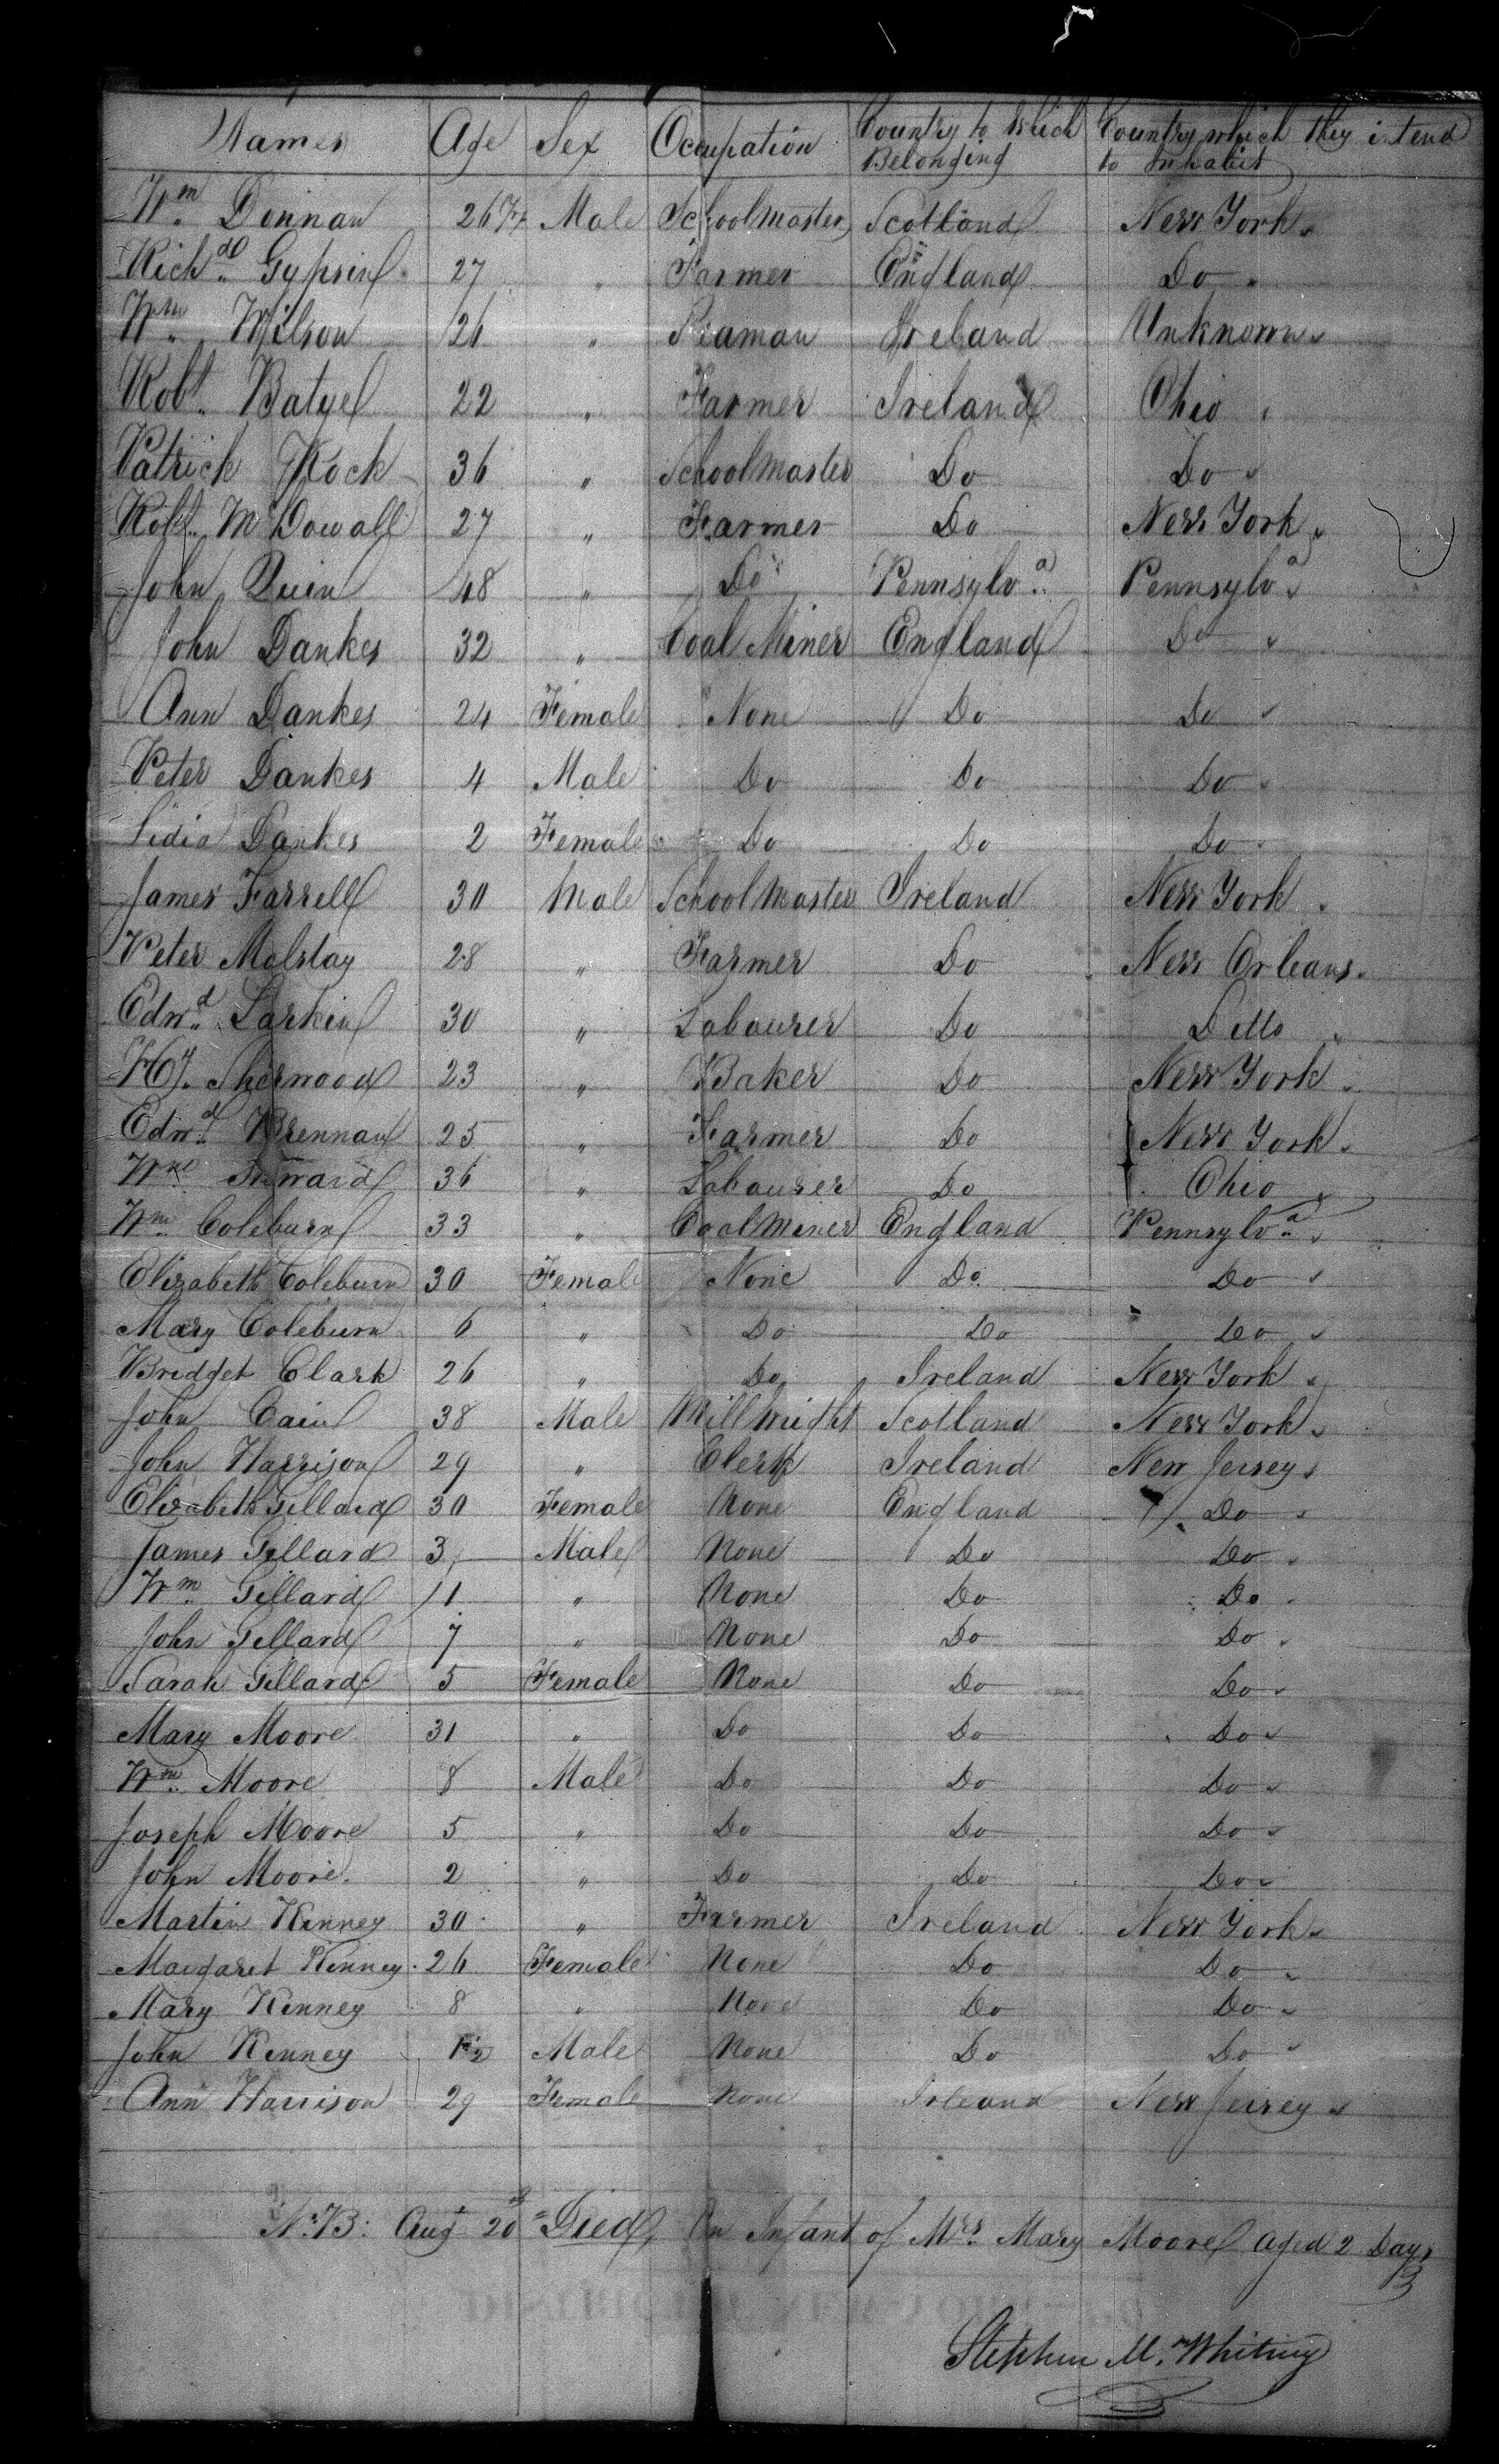 Names Age Sex Occupation Country to Which Belonging Country which they intend to Inhabit
Wm Donnan 26 Male Schoolmaster Scotland New York
Richd 27 " Farmer England Do
Wm Wilson 26 " Seaman Ireland Unknown
Robt Batye 22 " Farmer Ireland Ohio
Patrick Rock 36 " Schoolmaster Do Do
Robt McDowall 27 " Farmer Do New York
John Quin 48 " Do Pennsylva Pennsylva
John Dankes 32 " Coal Miner England Do
Ann Dankes 24 Female None Do Do
Peter Dankes 4 Male Do Do Do
Lidia Dankes 2 Female Do Do Do
James Farrell 30 Male Schoolmaster Ireland New York
Peter Malstay 28 " Farmer Do New Orleans
Edwd Larkin 30 " Labourer Do Ditto
Hy Sherwood 23 " Baker Do New York
Edwd Brennan 25 " Farmer Do New York
Wm 36 " Labourer Do Ohio
Wm Coleburn 33 " Coal Miner England Pennsylva
Elizabeth Coleburn 30 Female None Do Do
Mary Coleburn 6 " Do Do Do
Bridget Clark 26 " Do Ireland New York
John Cain 38 Male Mill Wright Scotland New York
John Harrison 29 " Clerk Ireland New Jersey
Elizabeth Gillard 30 Female None England Do
James Gillard 3 Male None Do Do
Wm Gillard 11 " None Do Do
John Gillard 7 " None Do Do
Sarah Gillard 5 Female None Do Do
Mary Moore 31 " Do Do Do
Wm Moore 8 Male Do Do Do
Joseph Moore 5 " Do Do Do
John Moore 2 " Do Do Do
Martin Kenney 30 " Farmer Ireland New York
Margaret Kenney 26 Female None Do Do
Mary Kenney 8 " None Do Do
John Kenney Male None Do Do
Ann Harrison 29 Female None Ireland New Jersey
N.B: Augt 20th Died, An Infant of Mrs Mary Moore aged 2 Days
Stephen M. Whitney